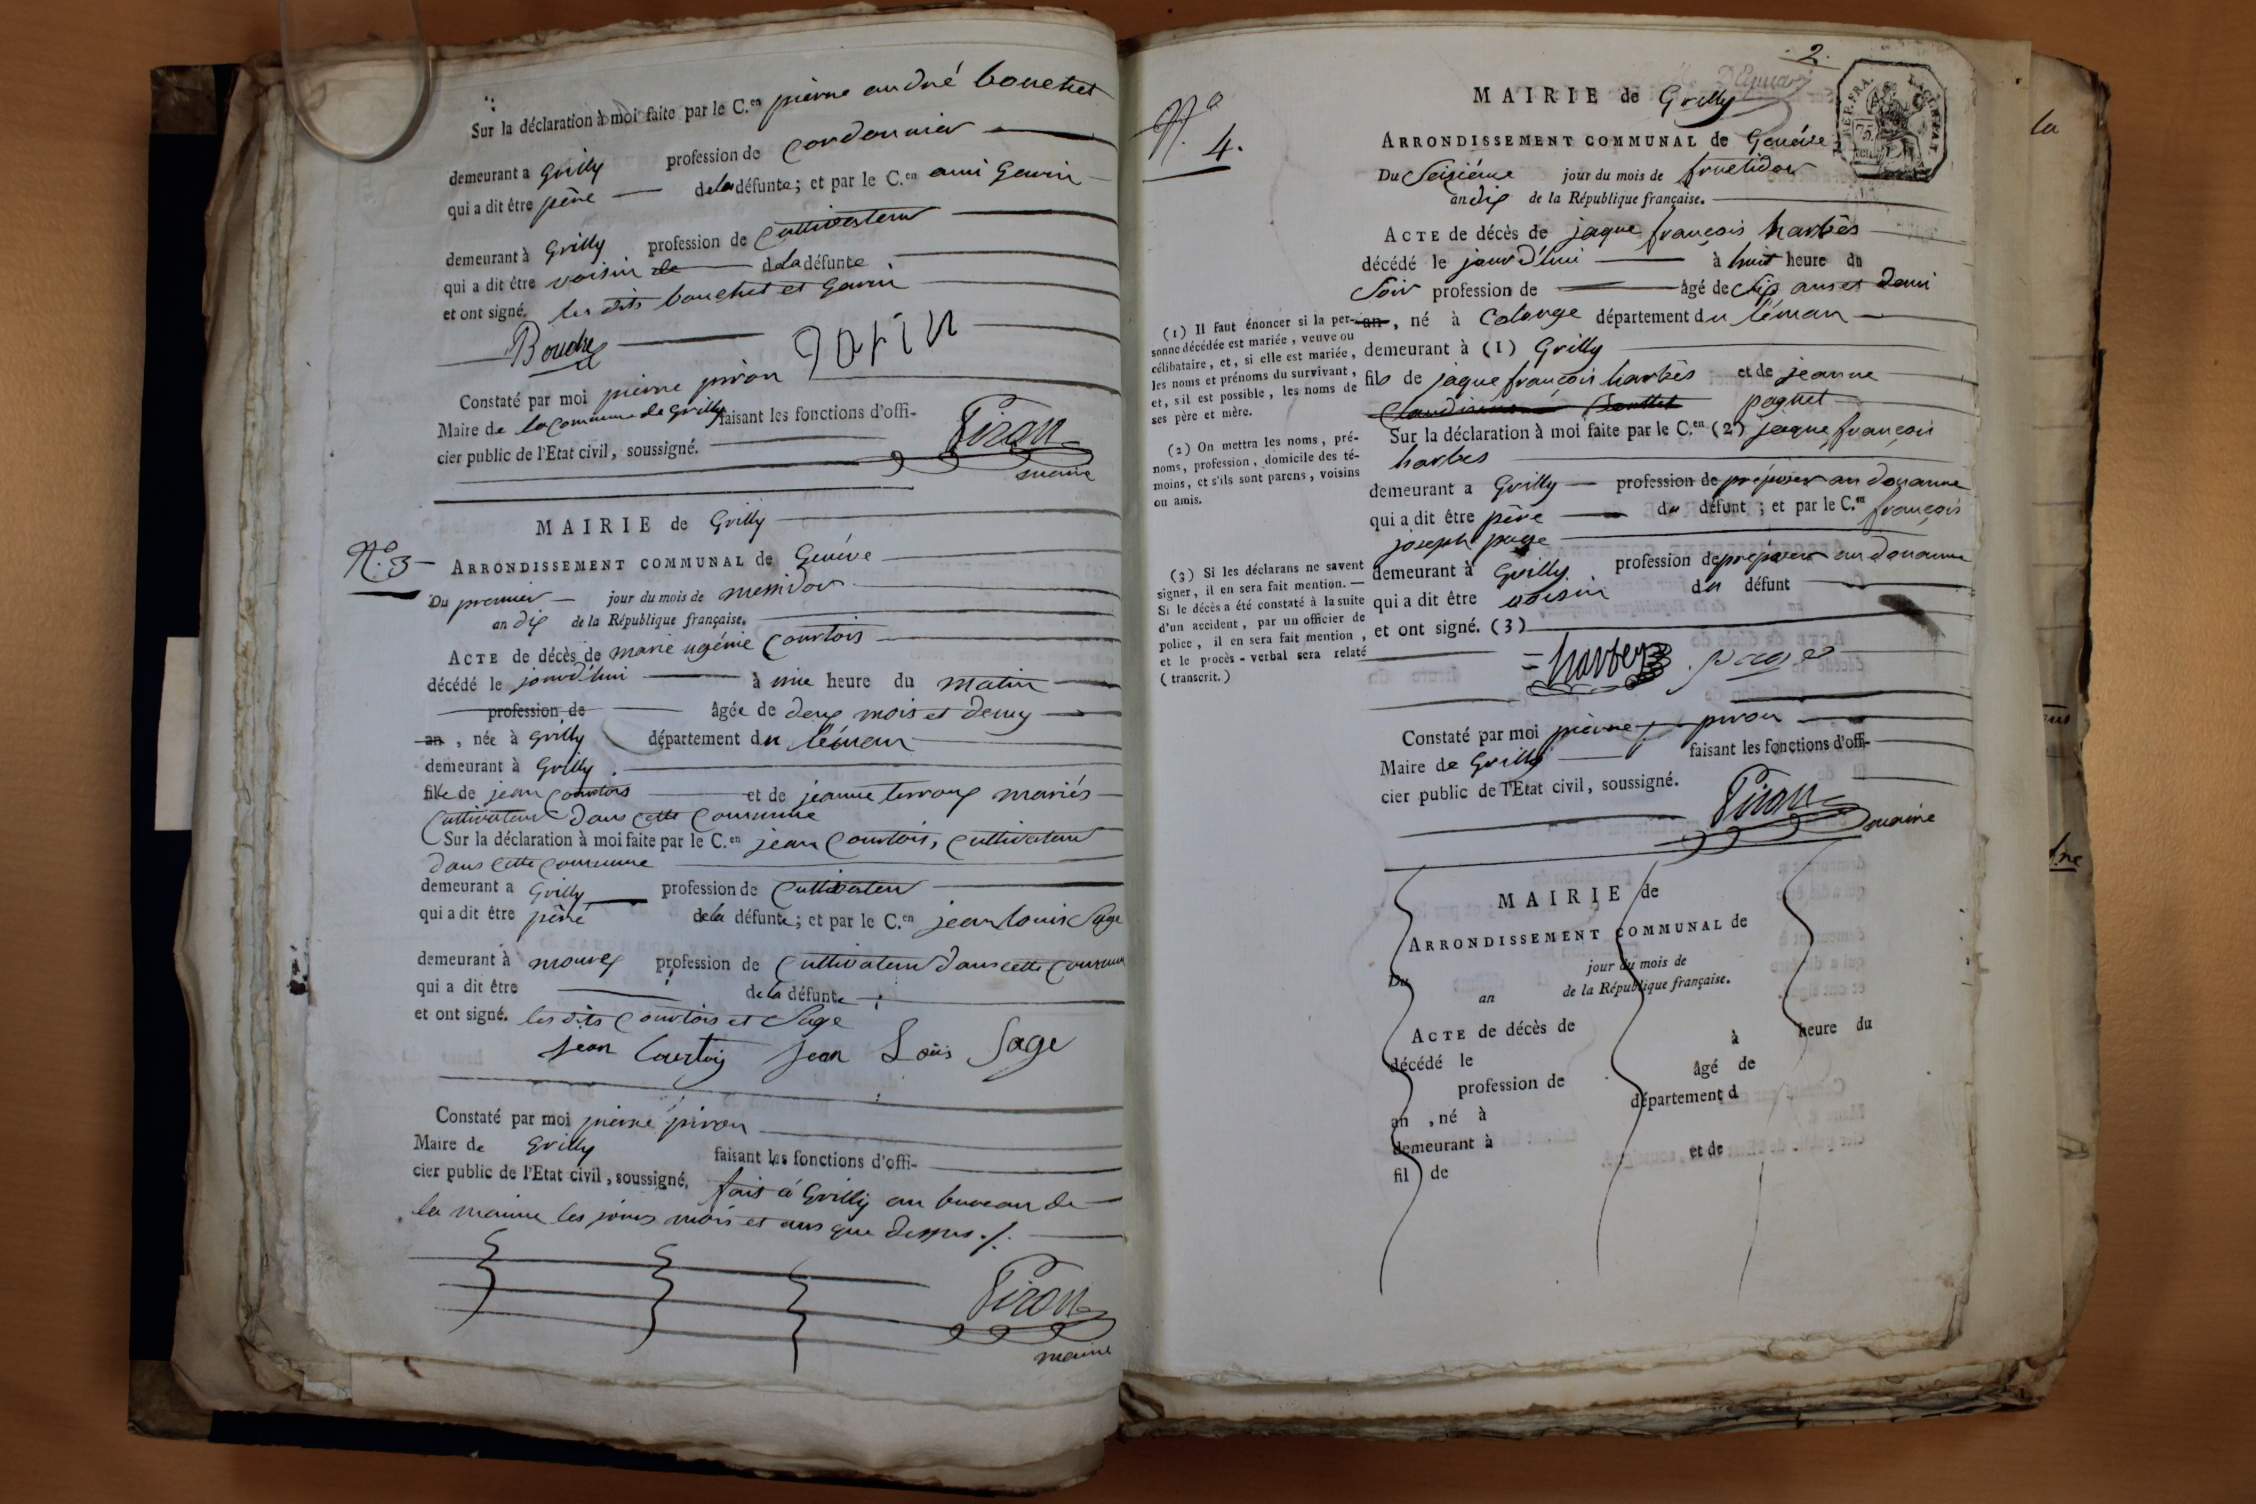 Sur la déclaration à moi faite par le C.en pierre andré bouchet
demeurant a Grilly profession de Cordonnier
qui a dit être père de la défunte; et par le C.en ami Gorin
demeurant à Grilly profession de Cultivateur
qui a dit être voisin de de la défunte
et ont signé. les dits bouchet et Gorin
Bouche gorin
Constaté par moi pierre piron
Maire de la Commune de Grilly faisant les fonctions d'offi-
cier public de l'Etat civil, soussigné.
Piron
maire
MAIRIE de Grilly
N.o 3
ARRONDISSEMENT COMMUNAL de Genéve
Du premier jour du mois de messidor
an dix de la République française.
ACTE de décès de marie ugénie Courtois
décédé le jourd'hui à une heure du matin
profession de âgée de deux mois et demy
an, née à Grilly département du léman
demeurant à Grilly.
fille de jean Courtois et de jeanne terroux mariés
Cultivateur dans cette Commune
Sur la déclaration à moi faite par le C.en jean Courtois, Cultivateur
dans cette Commune
demeurant a Grilly profession de Cultivateur
qui a dit être père de la défunte; et par le C.en jean louis Sage
demeurant à mourex profession de Cultivateur dans cette Commune
qui a dit être de la défunte
et ont signé. les dits Courtois et Sage
Jean Courtois Jean Loüis Sage
Constaté par moi pierre piron
Maire de Grilly faisant les fonctions d'offi-
cier public de l'Etat civil, soussigné, fait à Grilly au bureau de
la mairie les jours mois et ans que dessus ./.
Piron
maire
2.
RÉP. FRA.
75
CENT.
N.o 4.
MAIRIE de Grilly
ARRONDISSEMENT COMMUNAL de Genéve
Du Seiziéme jour du mois de fructidor
an dix de la République française.
ACTE de décès de jaque françois harbès
décédé le jourd'hui à huit heure du
Soir profession de âgé de Six ans et demi
an, né à Colonge département du léman
demeurant à (1) Grilly
fils de jaque françois harbès et de jeanne
paquet
Sur la déclaration à moi faite par le C.en (2) jaque françois
harbes
demeurant a Grilly profession de préposer au douanne
qui a dit être père du défunt; et par le C.en françois
joseph page
demeurant à Grilly profession de préposer au douanne
qui a dit être voisin du défunt
et ont signé. (3)
harbes pages
Constaté par moi pierre piron
Maire de Grilly faisant les fonctions d'offi-
cier public de l'Etat civil, soussigné.
Piron
maire
(1) Il faut énoncer si la per-
sonne décédée est mariée, veuve ou
célibataire, et, si elle est mariée,
les noms et prénoms du survivant,
et, s'il est possible, les noms de
ses père et mère.
(2) On mettra les noms, pré-
noms, profession, domicile des té-
moins, et s'ils sont parens, voisins
ou amis.
(3) Si les déclarans ne savent
signer, il en sera fait mention. —
Si le décès a été constaté à la suite
d'un accident, par un officier de
police, il en sera fait mention,
et le procès-verbal sera relaté
(transcrit.)
MAIRIE de
ARRONDISSEMENT COMMUNAL de
Du jour du mois de
an de la République française.
ACTE de décès de
décédé le à heure du
profession de âgé de
an, né à département d
demeurant à
fil de et de
la